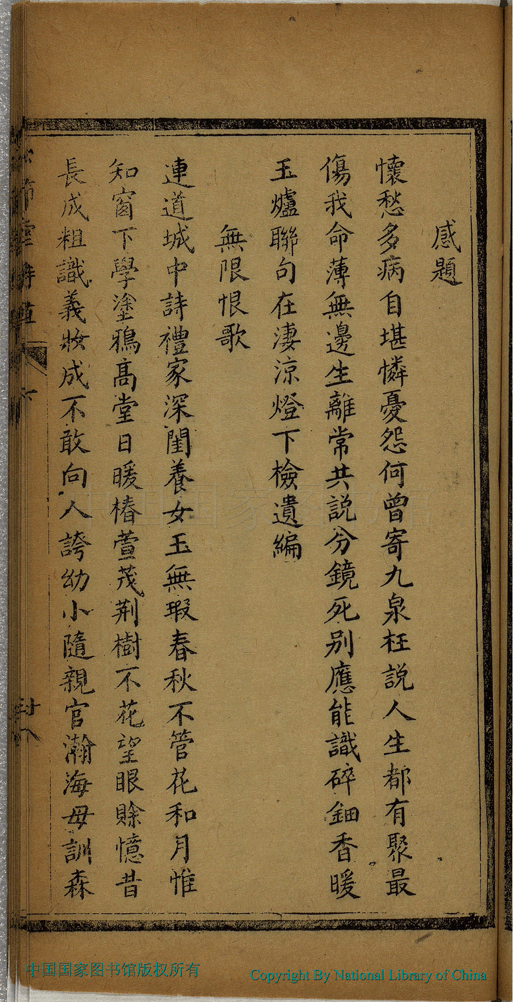 感題
懷愁多病自堪憐憂怨何曾寄九泉枉說人生都有聚最
傷我命薄無邊生離常共說分鏡死別應能識碎鈿香暖
玉爐聯句在淒涼燈下檢遺編
無限恨歌
連道城中詩禮家深閨養女玉無瑕春秋不管花和月惟
知窗下學塗鴉高堂日暖椿萱茂荆樹不花望眼賒憶昔
長成粗識義妝成不敢向人誇幼小隨親官瀚海母訓森
中国国家图书馆版权所有
Copyright By National Library of China